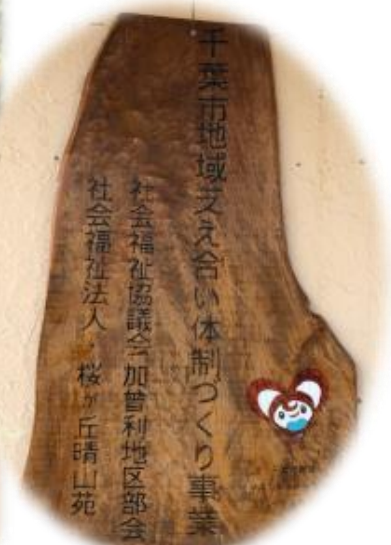 千葉市地域支え合い体制づくり事業
社会福祉協議会加曽利地区部会
社会福祉法人・桜が丘晴山苑